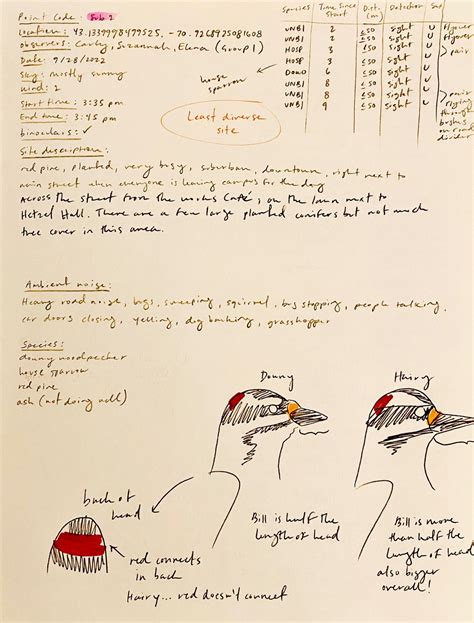 Point Code: Sub 2
Location: 43.1339998499525, -70.9268925081608
Observers: Carley, Suzannah, Elena (Group 1)
Date: 9/28/2022
Sky: mostly sunny
Wind: 2
Start time: 3:35 pm
End time: 3:45 pm
binoculars: ✓
Species Time Since Start Dist. (m) Detection Sex
UNBI 2 ≤50 sight U flyover
UNBI 2 ≤50 sight U flyover
HOSP 3 ≤50 sight U
HOSP 3 ≤50 sight U pair
DOWO 6 ≤50 sight U
UNBI 8 ≤50 sight U
UNBI 8 ≤50 sight U pair
UNBI 9 ≤50 sight U through bushes on road divider
house sparrow
Least diverse site
Site description:
red pine, planted, very busy, suburban, downtown, right next to
main street when everyone is leaving campus for the day
Across the street from the works Café, on the lawn next to
Hetzel Hall. There are a few large planted conifers but not much
tree cover in this area.
Ambient noise:
Heavy road noise, bugs, sweeping, squirrel, bus stopping, people talking,
car doors closing, yelling, dog barking, grasshopper
Species:
downy woodpecker
house sparrow
red pine
ash (not doing well)
Downy
Hairy
back of head
Bill is half the length of head
Bill is more than half the length of head
also bigger overall!
red connects in back
Hairy... red doesn't connect